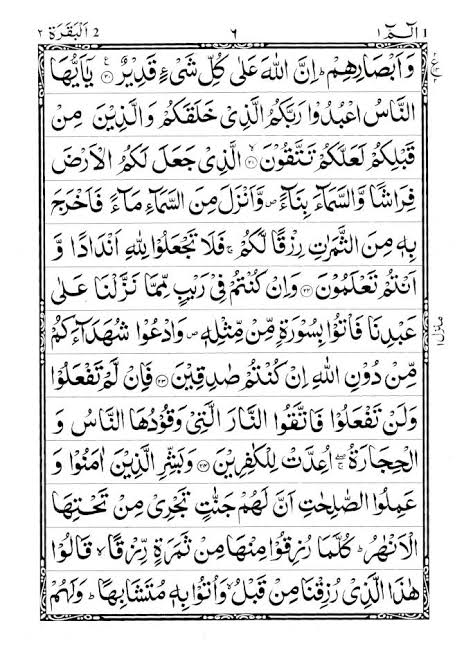 2 اَلْبَقَرَة ٢ ٦ الٓمّٓ ١ 1
وَاَبْصَارِهِمْ ؕ اِنَّ اللّٰهَ عَلٰى كُلِّ شَىْءٍ قَدِيْرٌ ﴿۲۰﴾ يٰۤاَيُّهَا
النَّاسُ اعْبُدُوْا رَبَّكُمُ الَّذِىْ خَلَقَكُمْ وَالَّذِيْنَ مِنْ
قَبْلِكُمْ لَعَلَّكُمْ تَتَّقُوْنَ ﴿۲۱﴾ الَّذِىْ جَعَلَ لَكُمُ الْاَرْضَ
فِرَاشًا وَّالسَّمَآءَ بِنَآءً ص وَّاَنْزَلَ مِنَ السَّمَآءِ مَآءً فَاَخْرَجَ
بِهٖ مِنَ الثَّمَرٰتِ رِزْقًا لَّكُمْ ۚ فَلَا تَجْعَلُوْا لِلّٰهِ اَنْدَادًا وَّ
اَنْتُمْ تَعْلَمُوْنَ ﴿۲۲﴾ وَاِنْ كُنْتُمْ فِىْ رَيْبٍ مِّمَّا نَزَّلْنَا عَلٰى
عَبْدِنَا فَاْتُوْا بِسُوْرَةٍ مِّنْ مِّثْلِهٖ ص وَادْعُوْا شُهَدَآءَكُمْ
مِّنْ دُوْنِ اللّٰهِ اِنْ كُنْتُمْ صٰدِقِيْنَ ﴿۲۳﴾ فَاِنْ لَّمْ تَفْعَلُوْا
وَلَنْ تَفْعَلُوْا فَاتَّقُوا النَّارَ الَّتِىْ وَقُوْدُهَا النَّاسُ وَ
الْحِجَارَةُ ۖۚ اُعِدَّتْ لِلْكٰفِرِيْنَ ﴿۲۴﴾ وَبَشِّرِ الَّذِيْنَ اٰمَنُوْا وَ
عَمِلُوا الصّٰلِحٰتِ اَنَّ لَهُمْ جَنّٰتٍ تَجْرِىْ مِنْ تَحْتِهَا
الْاَنْهٰرُ ؕ كُلَّمَا رُزِقُوْا مِنْهَا مِنْ ثَمَرَةٍ رِّزْقًا ۙ قَالُوْا
هٰذَا الَّذِىْ رُزِقْنَا مِنْ قَبْلُ ۙ وَاُتُوْا بِهٖ مُتَشَابِهًا ؕ وَلَهُمْ
منزل ١